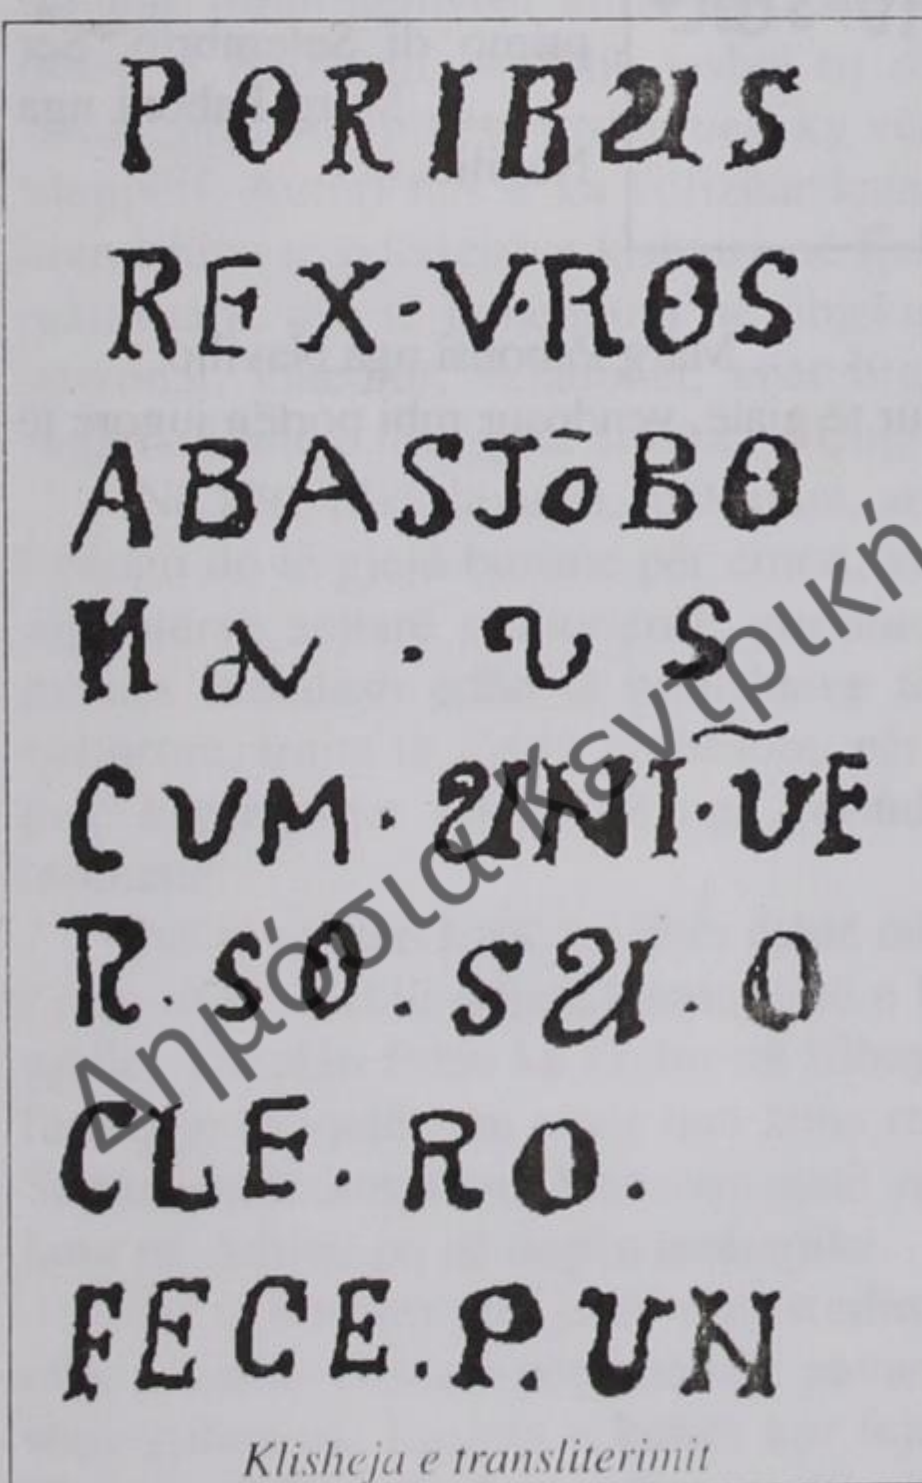 PORIBUS
REX·V·ROS
ABASJŌBO
NN·US
CUM·UNI·ŨE
R·SO·SU·O
CLE·RO·
FECE·P·UN
Klisheja e transliterimit
Δημόσια Κεντρική